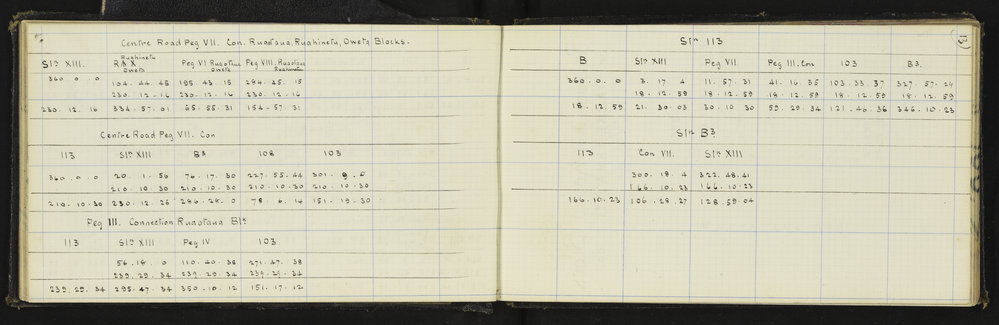 Centre Road Peg VII. Con. Ruaotaua, Ruahinetu, Oweta Blocks.
Ruahinetu Ruaotaua
Stn XIII. R & X Peg VI Ruaotaua Peg VIII. Ruahinetu
Oweta Oweta
360 . 0 . 0 104 . 44 . 45 195 . 43 . 15 284 . 45 . 15
230 . 12 . 16 230 . 12 . 16 230 . 12 . 16
230 . 12 . 16 334 . 57 . 01 65 . 55 . 31 154 . 57 . 31
Centre Road Peg VII. Con
113 Stn XIII B3 108 103
360 . 0 . 0 20 . 1 . 56 76 . 17 . 30 227 . 55 . 44 301 . 9 . 0
210 . 10 . 30 210 . 10 . 30 210 . 10 . 30 210 . 10 . 30
210 . 10 . 30 230 . 12 . 26 286 . 28 . 0 78 . 6 . 14 151 . 19 . 30
Peg III. Connection, Ruaotaua Blk
113 Stn XIII Peg IV 103
56 . 18 . 0 110 . 40 . 38 271 . 47 . 38
239 . 29 . 34 239 . 29 . 34 239 . 29 . 34
239 . 29 . 34 295 . 47 . 34 350 . 10 . 12 151 . 17 . 12
13
Stn 113
B Stn XIII Peg VII. Peg III. Con 103 B3.
360 . 0 . 0 3 . 17 . 4 11 . 57 . 31 41 . 16 . 35 103 . 33 . 37 327 . 57 . 24
18 . 12 . 59 18 . 12 . 59 18 . 12 . 59 18 . 12 . 59 18 . 12 . 59
18 . 12 . 59 21 . 30 . 03 30 . 10 . 30 59 . 29 . 34 121 . 46 . 36 346 . 10 . 23
Stn B3
113 Con VII. Stn XIII
300 . 18 . 4 322 . 48 . 41
166 . 10 . 23 166 . 10 . 23
166 . 10 . 23 106 . 28 . 27 128 . 59 . 04